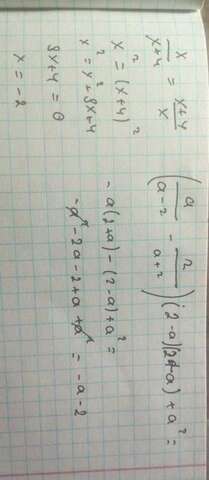 x/(x+4) = (x+4)/x
x² = (x+4)²
x² = x² + 8x + 4
8x + 4 = 0
x = -2
(a/(a-2) - 2/(a+2))(2-a)(2+a) + a² =
-a(2+a) - (2-a) + a² =
-a² - 2a - 2 + a + a² = -a - 2